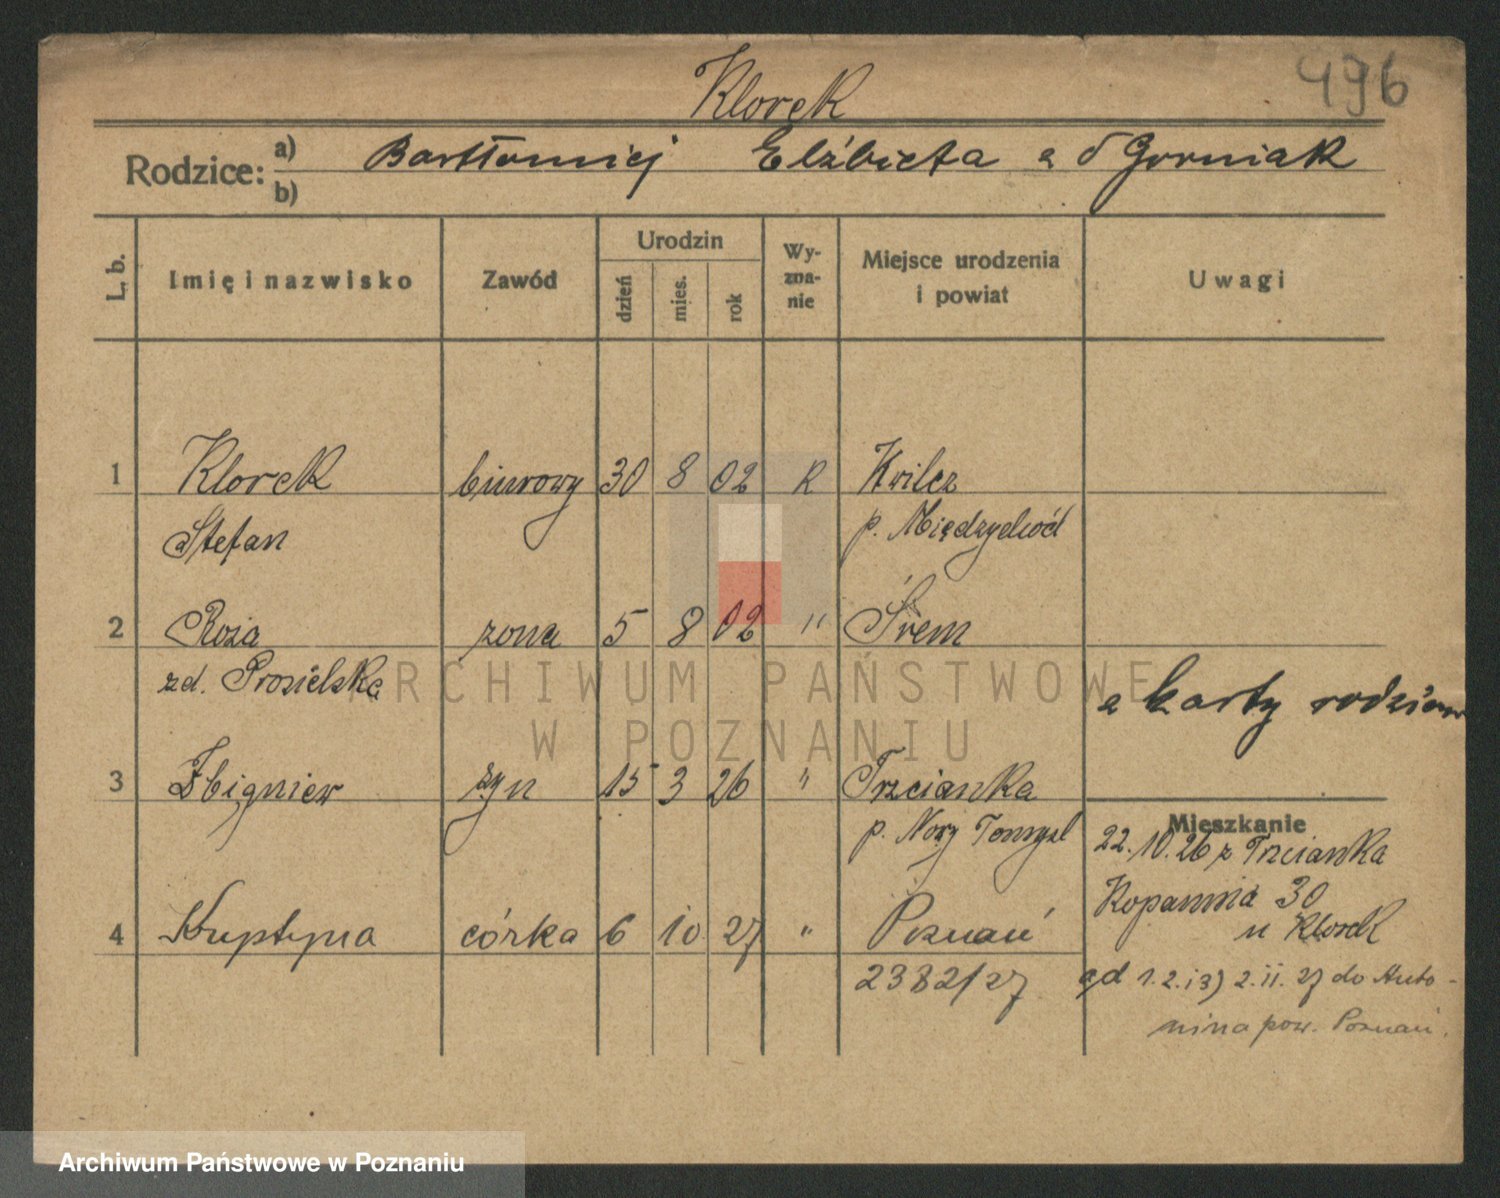 496
Klorek
Rodzice: a) Bartłomiej Elżbieta z d Gorniak
b)
L. b. Imię i nazwisko Zawód Urodzin dzień mies. rok Wy-zna-nie Miejsce urodzenia i powiat Uwagi
1 Klorek biurowy 30 8 02 R Kwilcz
Stefan p. Międzychód
2 Roża zona 5 8 02 " Śrem
zd. Prosielska
z karty rodzinn
3 Zbigniew syn 15 3 26 " Trzcianka
p. Nowy Tomysl
Mieszkanie
22.10.26 z Trzcianka
Kopanina 30
u Klorek
4 Krystyna córka 6 10 27 " Poznań
2382/27
ad 1.2.i3) 2.11.27 do Anto-
nina pow. Poznań.
ARCHIWUM PAŃSTWOWE
W POZNANIU
Archiwum Państwowe w Poznaniu